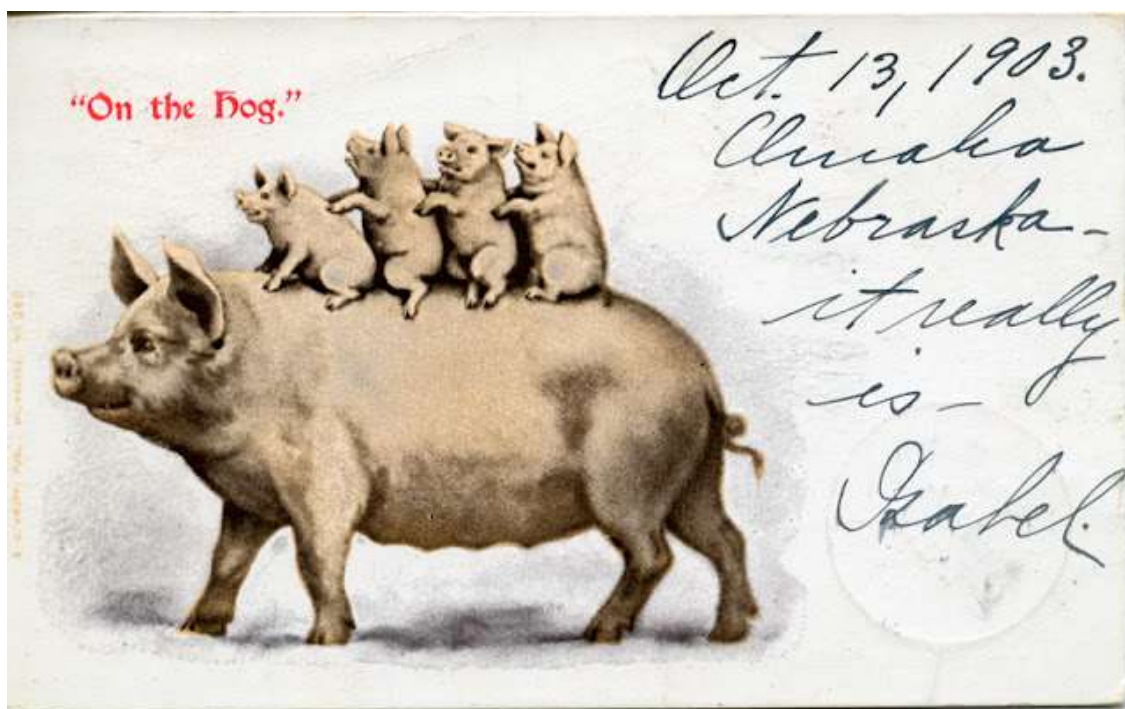 "On the Hog."
Oct. 13, 1903.
Omaha
Nebraska -
it really
is -
Isabel.